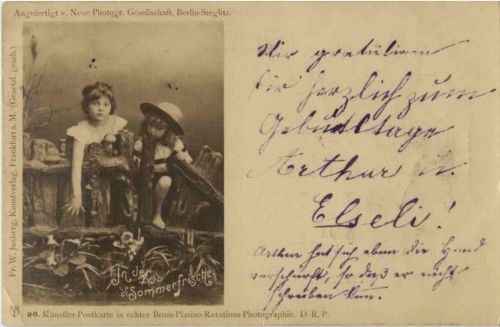 Angefertigt v. Neue Photogr. Gesellschaft, Berlin-Steglitz.
Fr. W. Juxberg, Kunstverlag, Frankfurt a. M. (Gesetzl. gesch.)
In der Sommerfrische
96. Künstler-Postkarte in echter Brom-Platino-Rotations-Photographie. D.-R.-P.
Wir gratuliren
Dir herzlich zum
Geburtstage
Arthur u.
Elseli!
Arthur hat sich eben die Hand
so daß er nicht
schreiben kan.